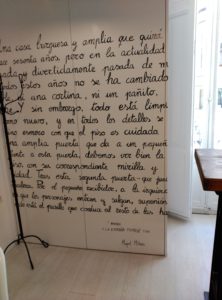 una casa burguesa y amplia que quizá
hace sesenta años, pero en la actualidad
y divertidamente pasada de m
estos años no se ha cambiado
ni una cortina, ni un pañito,
sin embargo, todo está limpi
como nuevo, y en todos los detalles se
esmero con que el piso es cuidado
una amplia puerta que da a un pequeñ
frente a esta puerta, debemos ver bien la
con su correspondiente mirilla y
Tras esta segunda puerta - que
Por el pequeño recibidor, a la izquier
que los personajes entran y salgan, suponien
está el pasillo que conduce al resto de las ha
Miguel Mihura